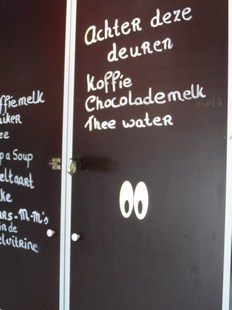 Achter deze
deuren
Koffie
Chocolademelk
Thee water
ffiemelk
iker
ee
p a Soup
eltaart
ke
ars-M-M's
in de
elvitrine